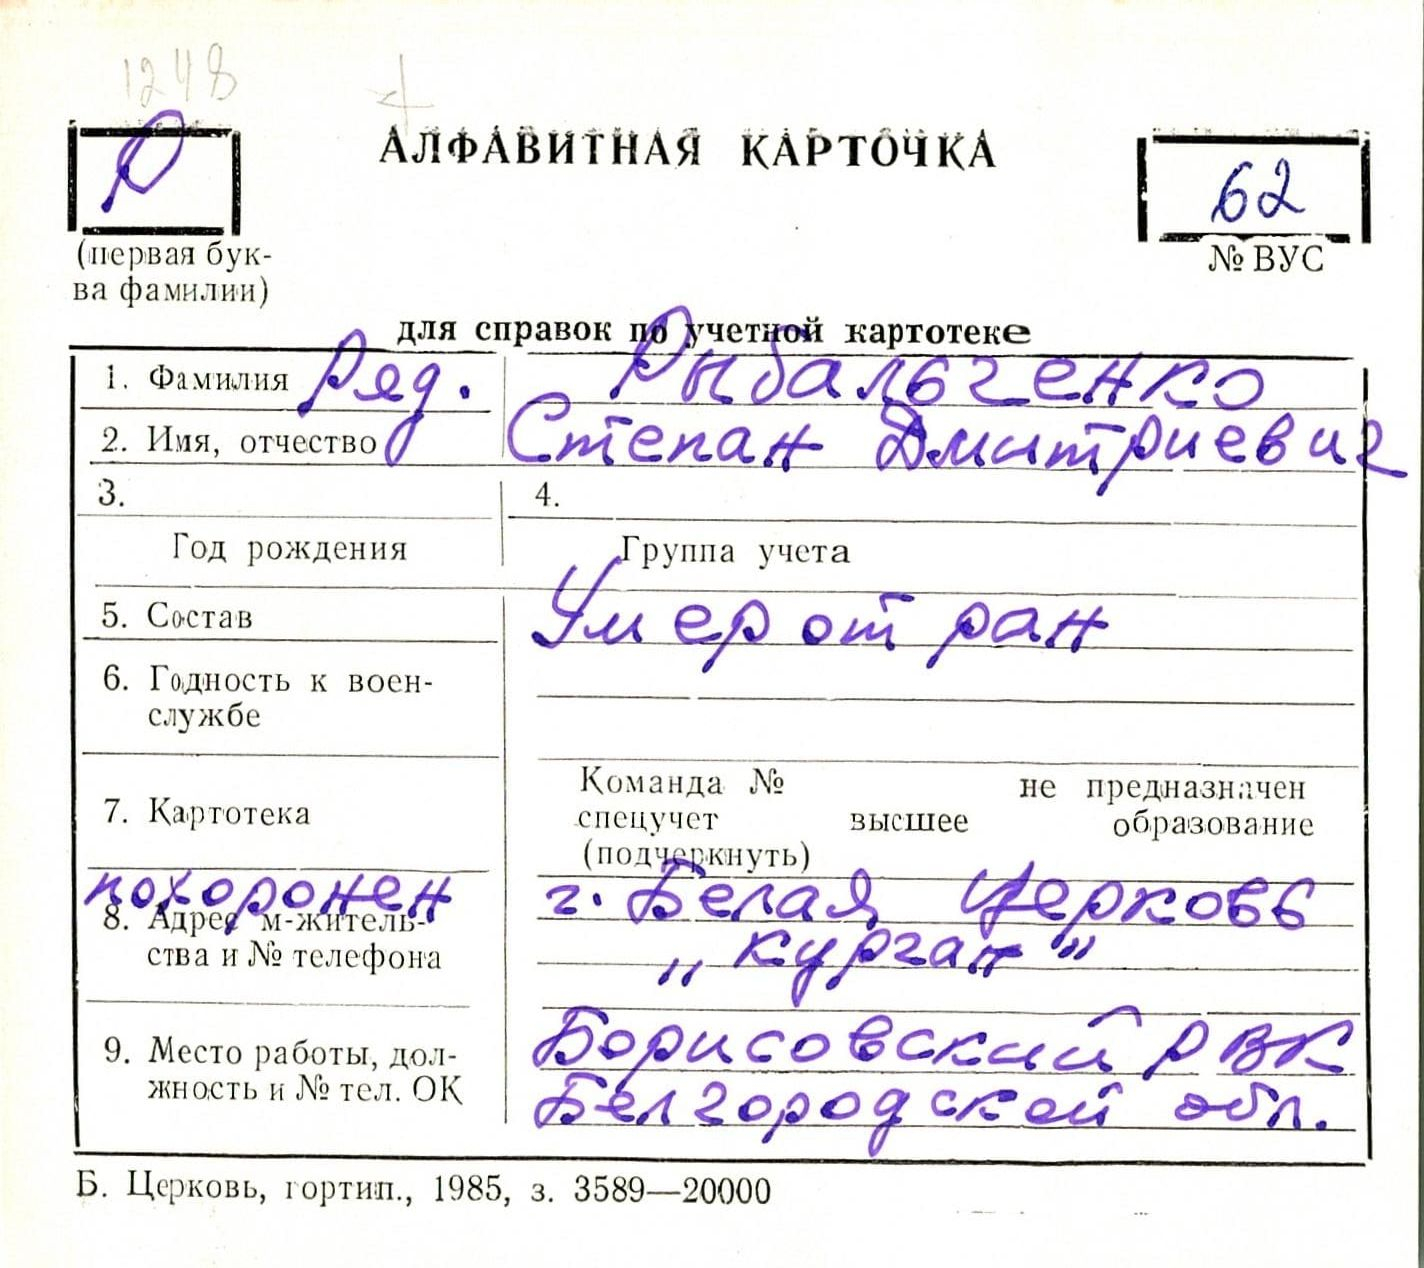 1248
Р
АЛФАВИТНАЯ КАРТОЧКА
62
(первая бук-
ва фамилии)
№ ВУС
для справок по учетной картотеке
1. Фамилия Ряд. Рыбальченко
2. Имя, отчество Степан Дмитриевич
3. 4.
Год рождения Группа учета
5. Состав Умер от ран
6. Годность к воен-
службе
Команда № не предназначен
7. Картотека спецучет высшее образование
(подчеркнуть)
похоронен г. Белая Церковь
8. Адрес м-житель-
ства и № телефона „курган"
9. Место работы, дол- Борисовский РВК
жность и № тел. ОК Белгородской обл.
Б. Церковь, гортип., 1985, з. 3589—20000